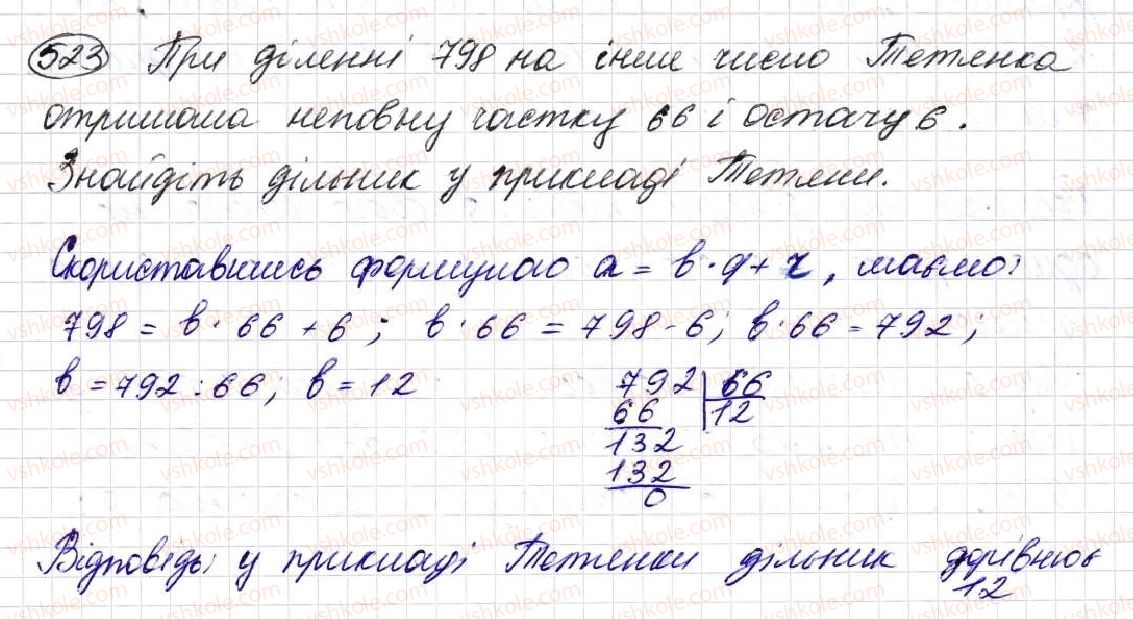 523 При діленні 798 на інше число Тетянка
отримала неповну частку 66 і остачу 6.
Знайдіть дільник у прикладі Тетяни.
Скориставшись формулою a = b · q + r, маємо:
798 = b · 66 + 6; b · 66 = 798 - 6; b · 66 = 792;
b = 792 : 66; b = 12
792 66
66 12
132
132
0
Відповідь: у прикладі Тетянки дільник дорівнює
12